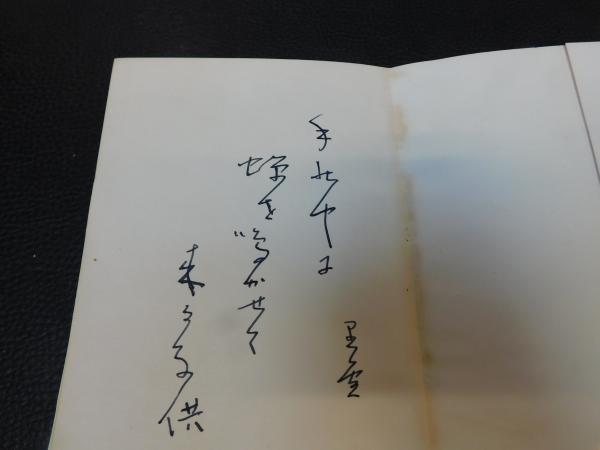 手の中に
蝉を鳴かせて
来る子供